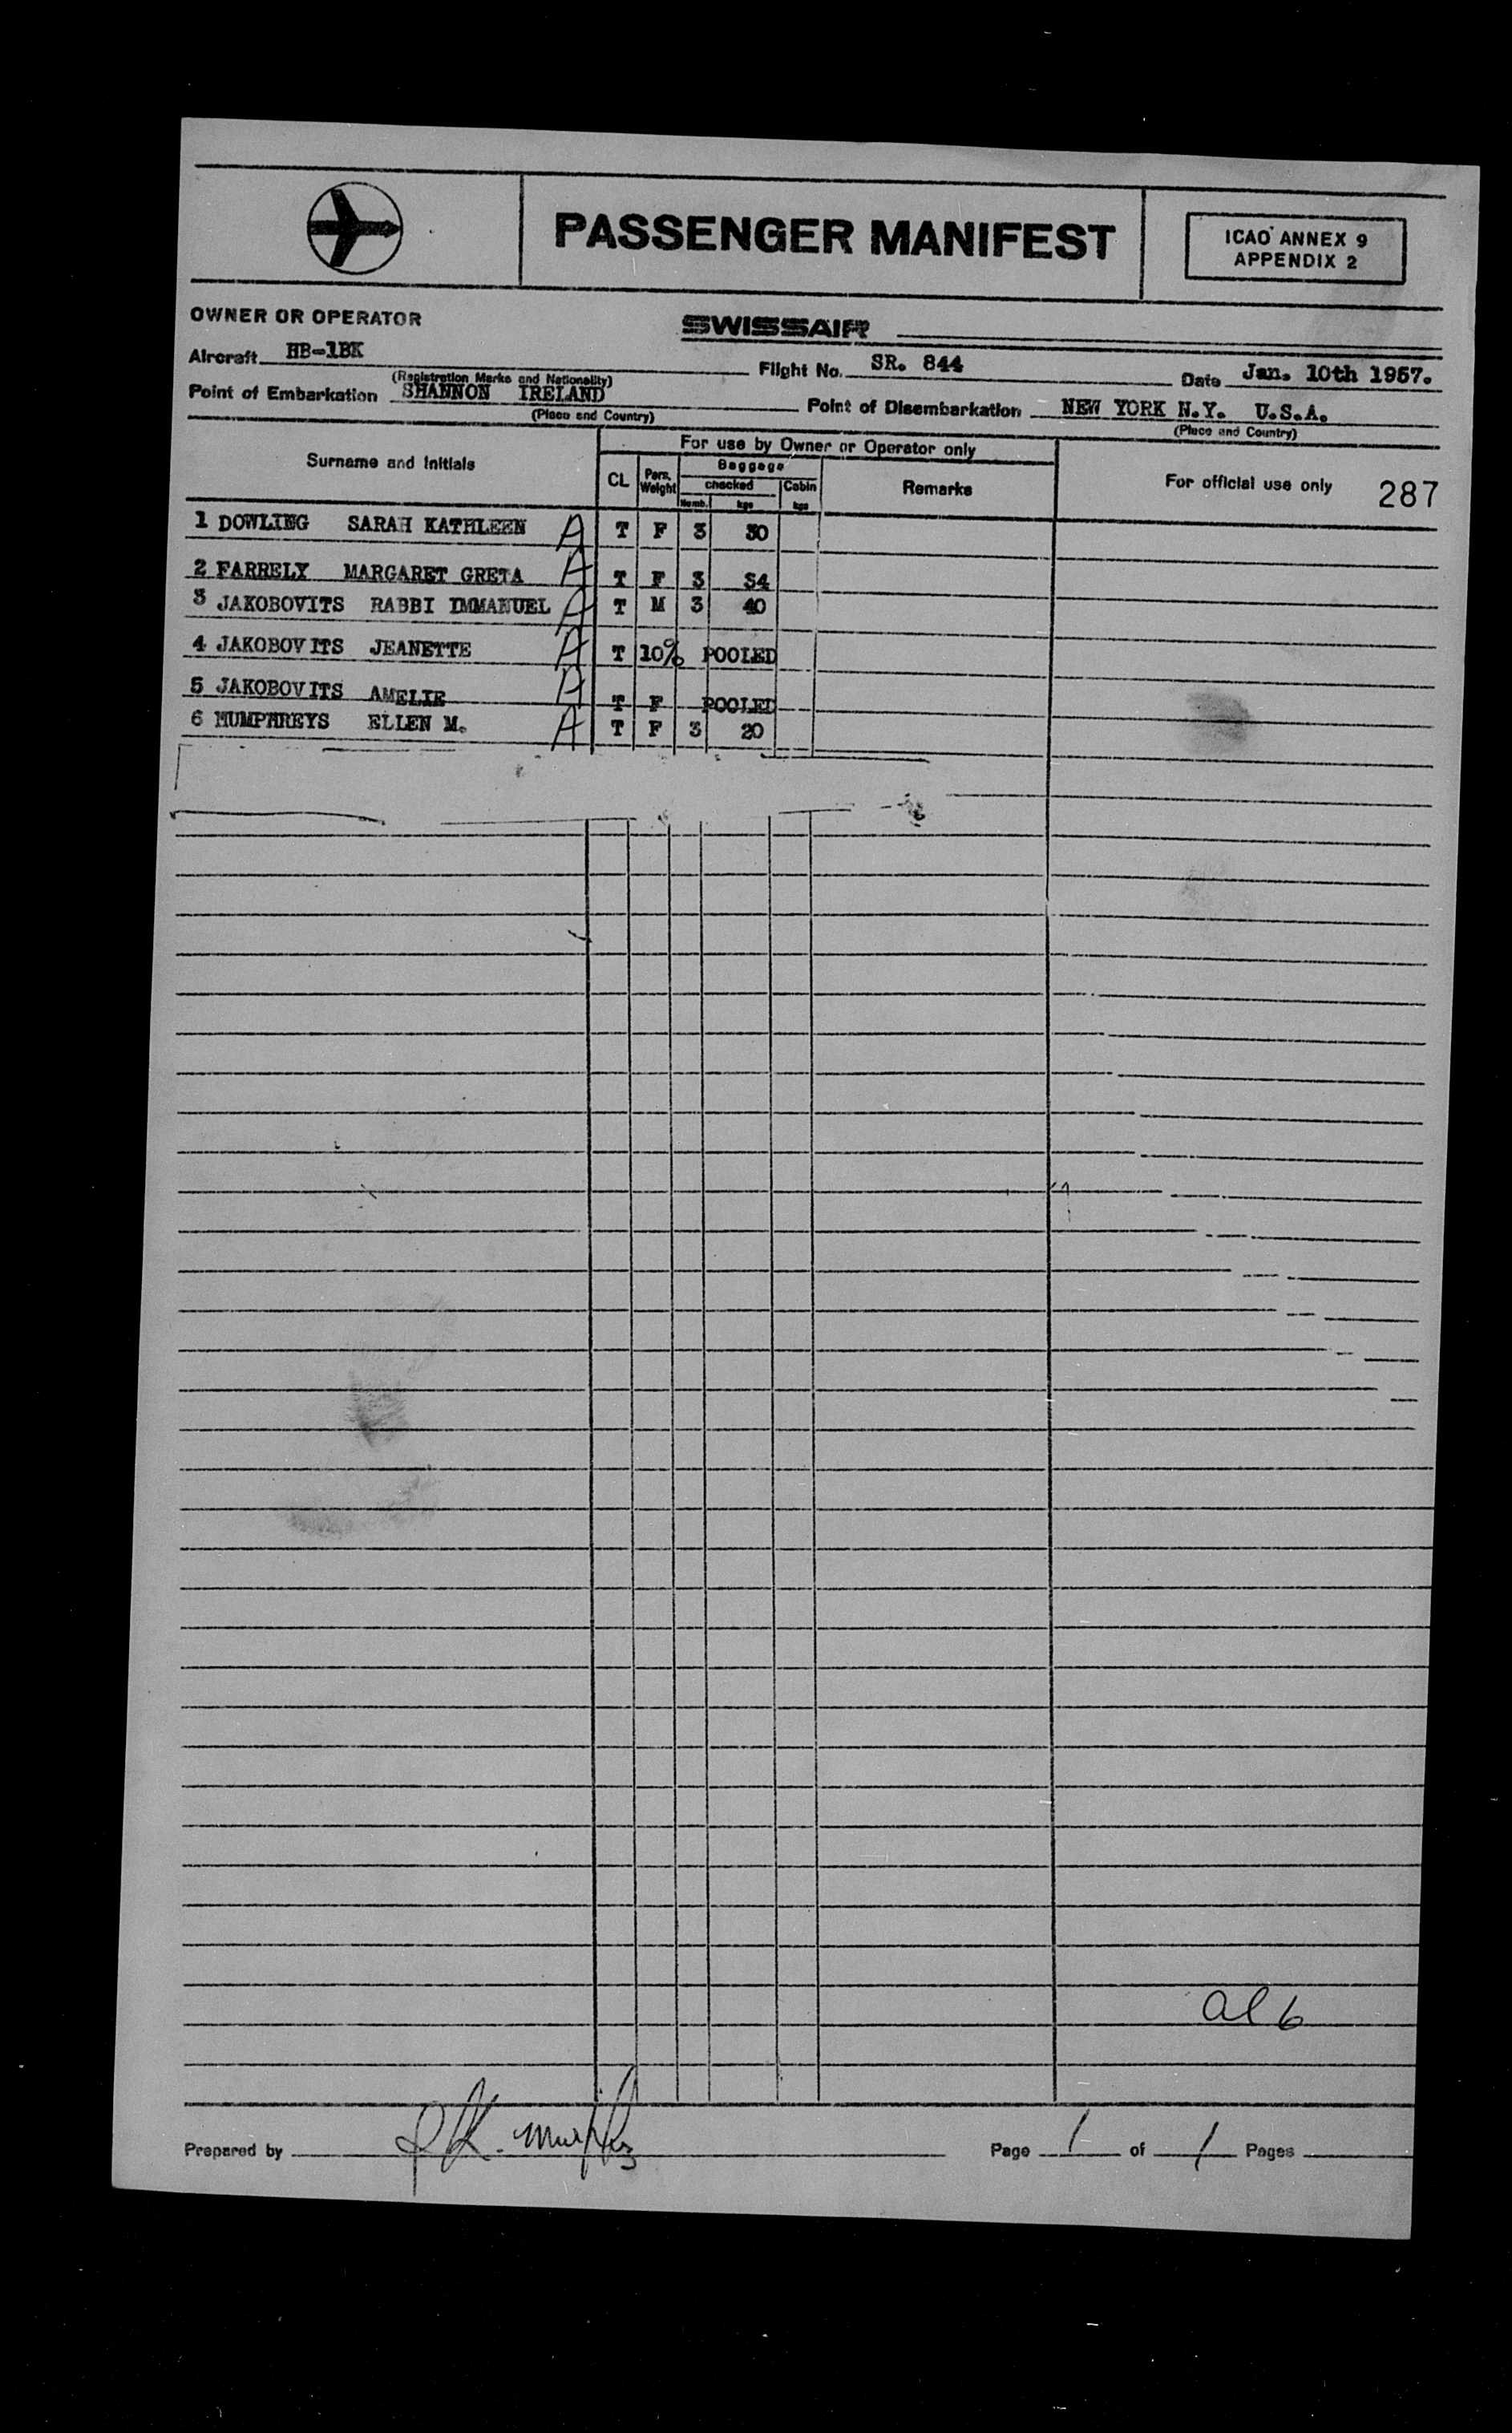 PASSENGER MANIFEST
ICAO ANNEX 9
APPENDIX 2
OWNER OR OPERATOR SWISSAIR
Aircraft HB-1BK Flight No. SR. 844 Date Jan. 10th 1957.
(Registration Marks and Nationality)
Point of Embarkation SHANNON IRELAND Point of Disembarkation NEW YORK N.Y. U.S.A.
(Place and Country) (Place and Country)
Surname and Initials For use by Owner or Operator only For official use only 287
CL Pers. Weight Baggage Remarks
checked Cabin
Numb. kgs kgs
1 DOWLING SARAH KATHLEEN A T F 3 30
2 FARRELY MARGARET GRETA A T F 3 34
3 JAKOBOVITS RABBI IMMANUEL A T M 3 40
4 JAKOBOVITS JEANETTE A T 10% POOLED
5 JAKOBOVITS AMELIE A T F POOLED
6 HUMPHREYS ELLEN M. A T F 3 20
al 6
Prepared by Murphy Page 1 of 1 Pages